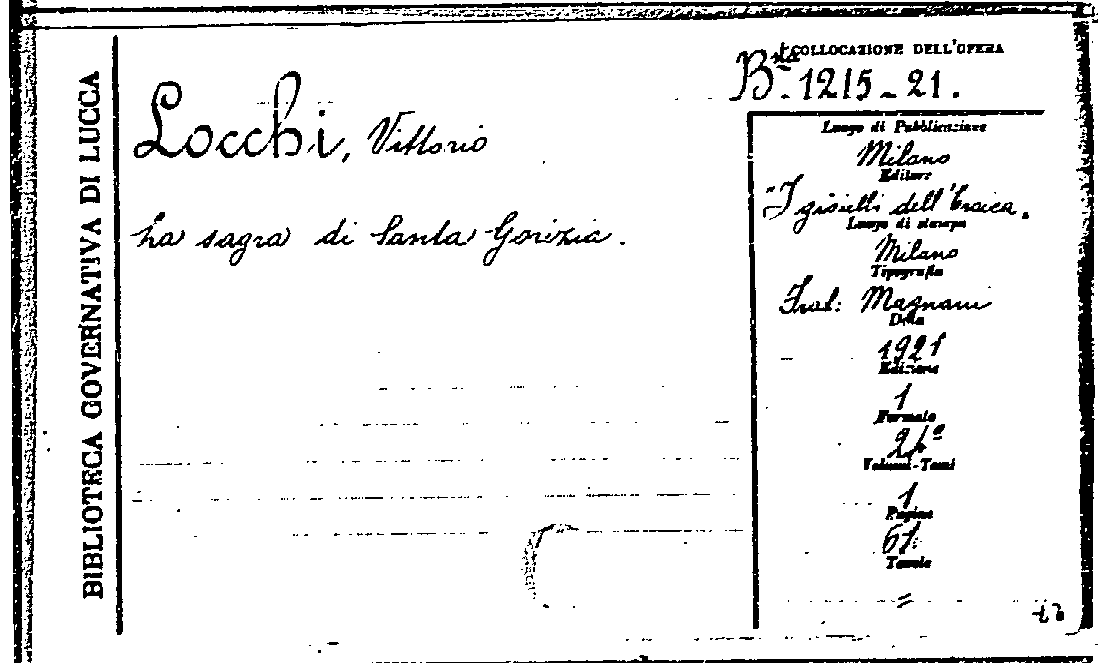 BIBLIOTECA GOVERNATIVA DI LUCCA
COLLOCAZIONE DELL'OPERA
Bta. 1215-21.
Locchi, Vittorio
La sagra di Santa Gorizia.
Luogo di Pubblicazione
Milano
Editore
"I gioielli dell'Eroica.
Luogo di stampa
Milano
Tipografia
Frat: Magnani
Data
1921
Edizione
1
Formato
24°
Volumi-Tomi
1
Pagine
61
Tavole
=